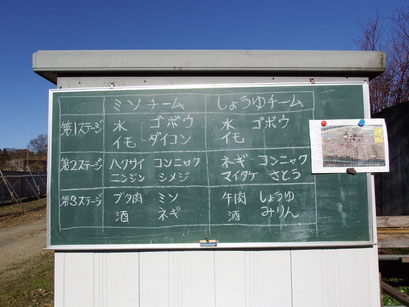 ミソチーム しょうゆチーム
第1ステージ 水 ゴボウ 水 ゴボウ
イモ ダイコン イモ
第2ステージ ハクサイ コンニャク ネギ コンニャク
ニンジン シメジ マイタケ さとう
第3ステージ ブタ肉 ミソ 牛肉 しょうゆ
酒 ネギ 酒 みりん